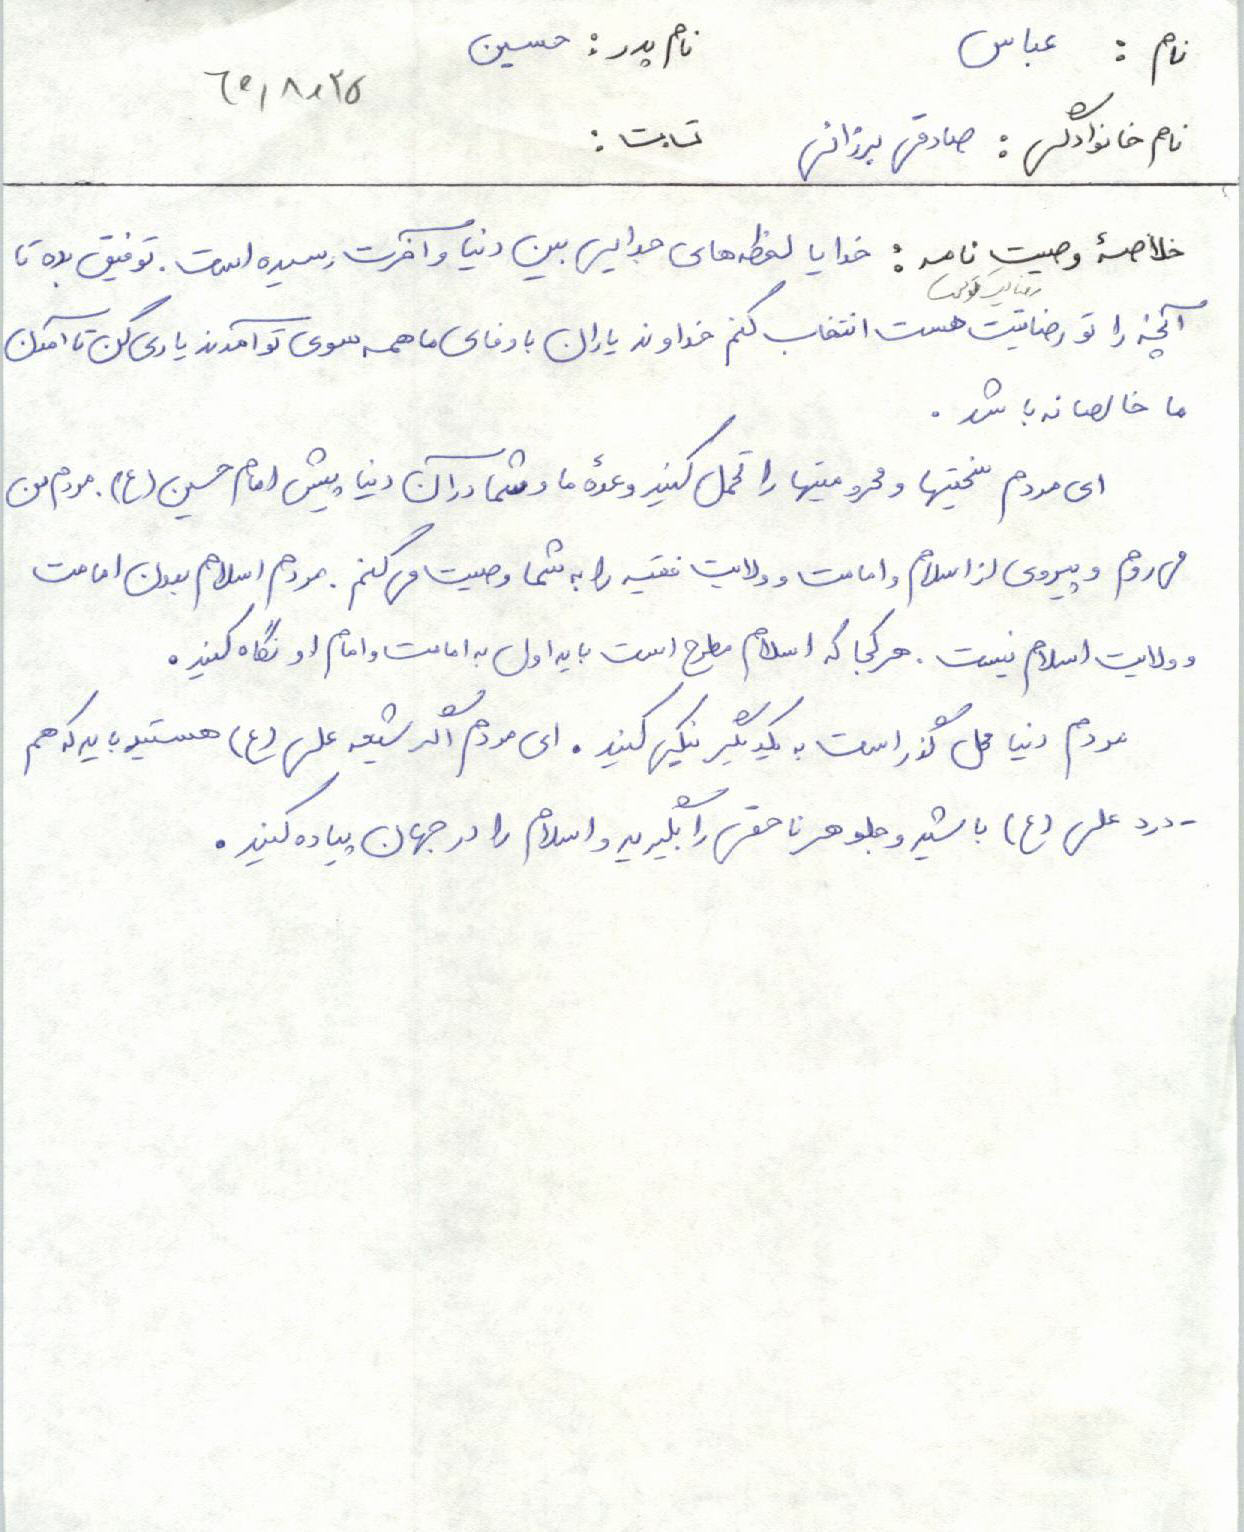 نام : عباس نام پدر : حسین
۶۵/۸/۲۵
نام خانوادگی : صادقی برزانی ثابت :
خلاصۀ وصیت نامه : خدایا لحظه‌های جدایی بین دنیا و آخرت رسیده است . توفیق بده تا
آنچه را تو رضایتت هست انتخاب کنم خداوند یاران با وفای ما همه سوی تو آمدند یاری کن تا آمدن
ما خالصانه باشد .
ای مردم سختیها و محرومیتها را تحمل کنید وعدۀ ما و شما در آن دنیا پیش امام حسین (ع) . مردم من
می روم و پیروی از اسلام و امامت و ولایت فقیه را به شما وصیت می کنم . مردم اسلام بدون امامت
و ولایت اسلام نیست . هر کجا که اسلام مطرح است باید اول به امامت و امام او نگاه کنید .
مردم دنیا محل گذر است به یکدیگر نیکی کنید . ای مردم اگر شیعه علی (ع) هستید باید که هم
-درد علی (ع) باشید و جلو هر ناحقی را بگیرید و اسلام را در جهان پیاده کنید .